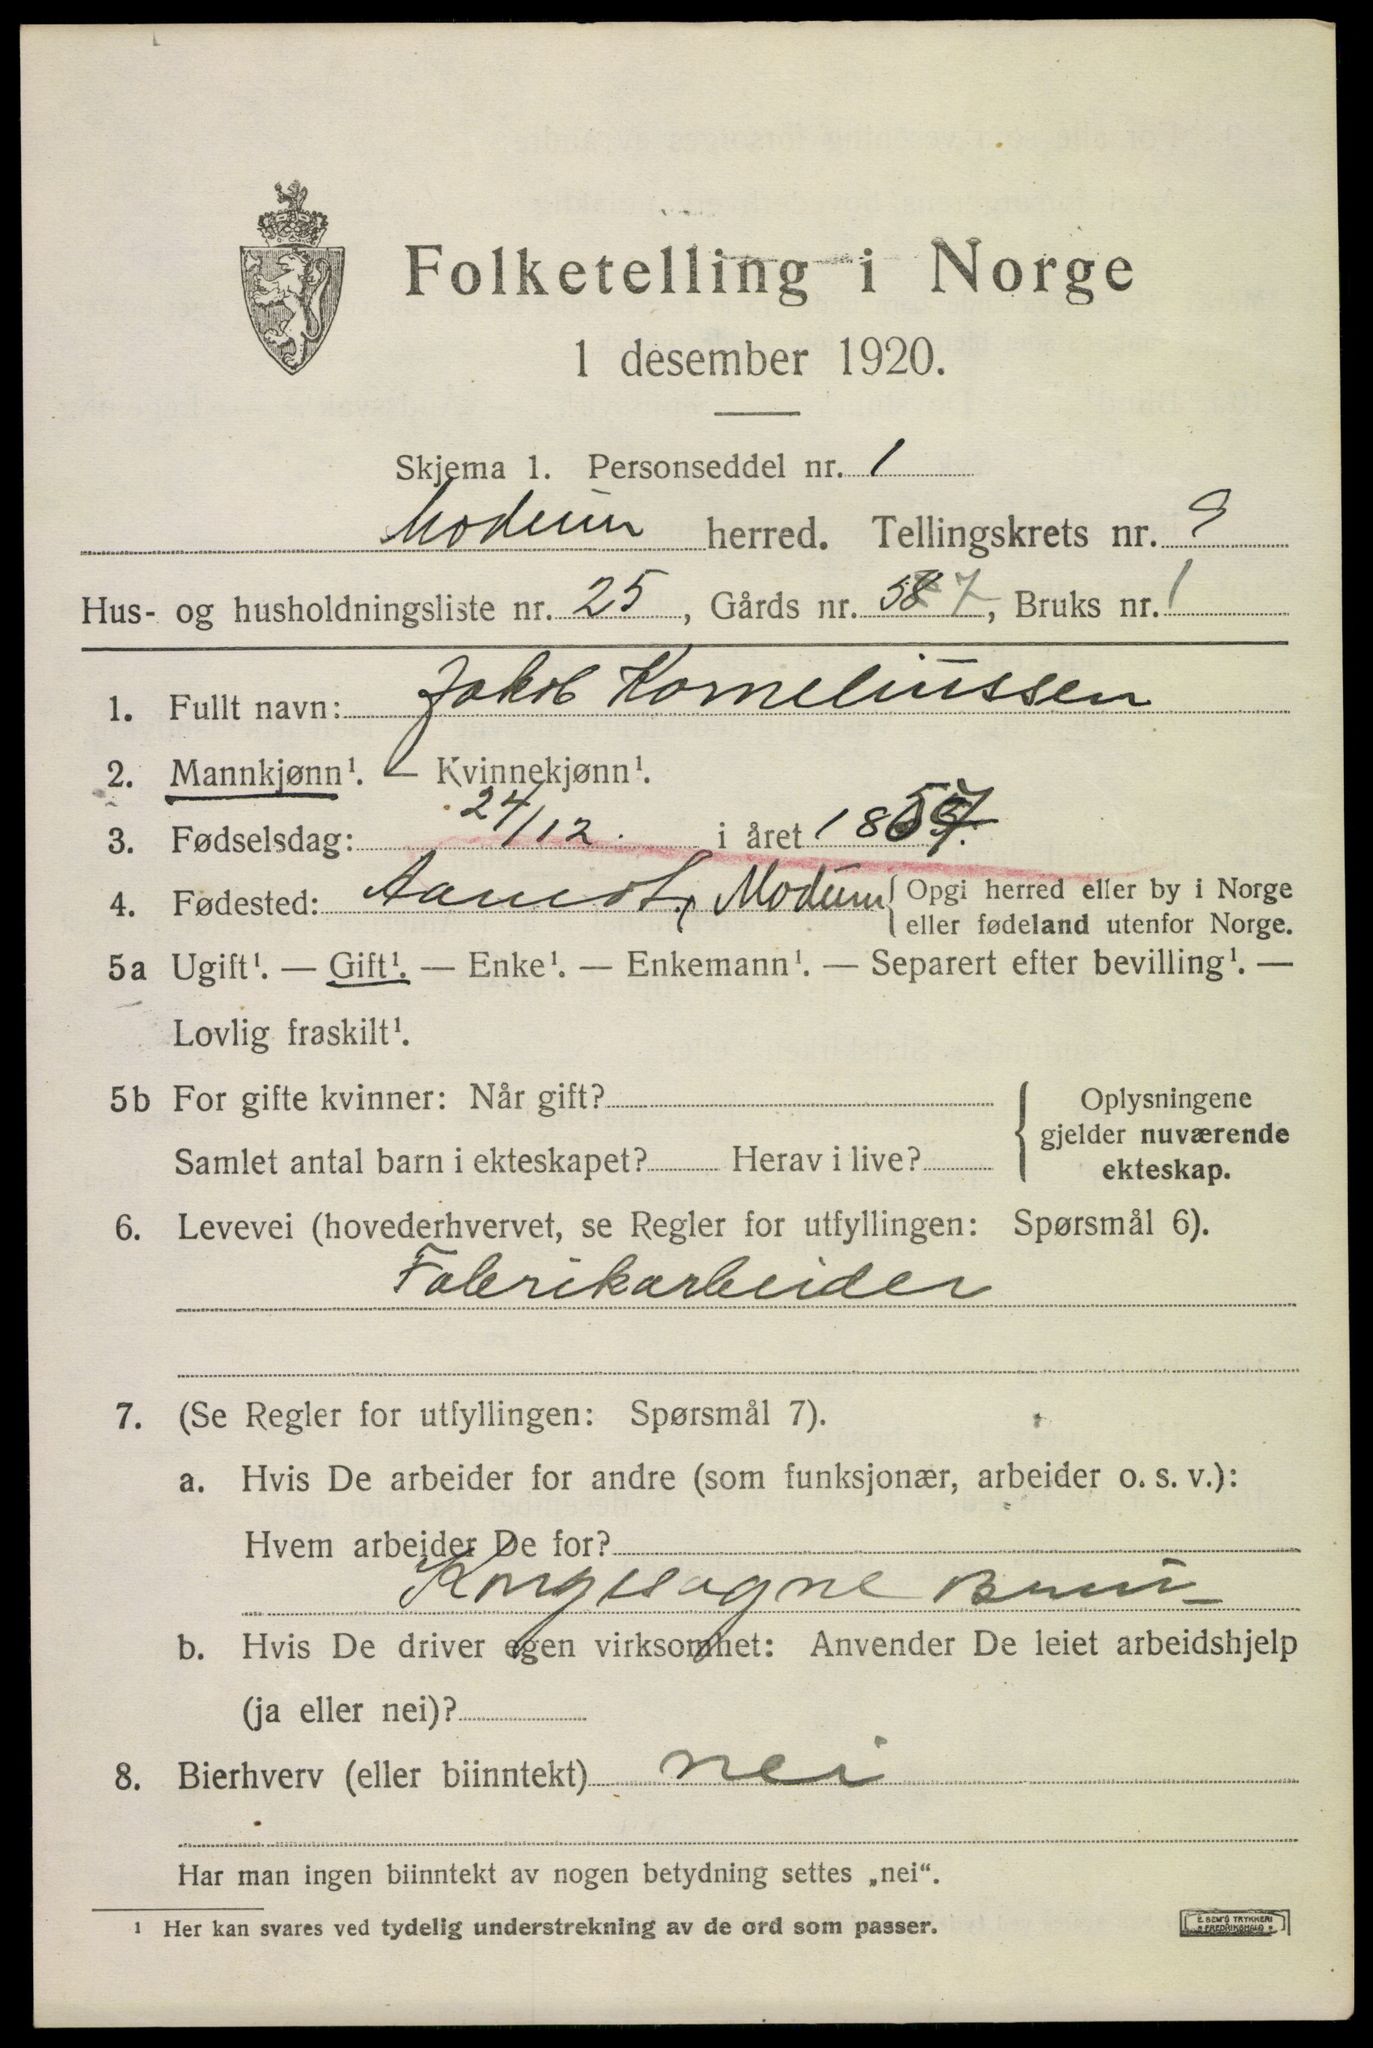 Folketelling i Norge
1 desember 1920.
Skjema 1. Personseddel nr. 1
Modum herred. Tellingskrets nr. 9
Hus- og husholdningsliste nr. 25, Gårds nr. 7, Bruks nr. 1
1. Fullt navn: Jakob Korneliussen
2. Mannkjønn¹. — Kvinnekjønn¹.
3. Fødselsdag: 24/12. i året 1857.
4. Fødested: Aamot, Modum { Opgi herred eller by i Norge
eller fødeland utenfor Norge.
5a Ugift¹. — Gift¹. — Enke¹. — Enkemann¹. — Separert efter bevilling¹. —
Lovlig fraskilt¹.
5b For gifte kvinner: Når gift?
Samlet antal barn i ekteskapet? Herav i live?
{ Oplysningene
gjelder nuværende
ekteskap.
6. Levevei (hovederhvervet, se Regler for utfyllingen: Spørsmål 6).
Fabrikarbeider
7. (Se Regler for utfyllingen: Spørsmål 7).
a. Hvis De arbeider for andre (som funksjonær, arbeider o. s. v.):
Hvem arbeider De for?
b. Hvis De driver egen virksomhet: Anvender De leiet arbeidshjelp
(ja eller nei)?
8. Bierhverv (eller biinntekt) nei
Har man ingen biinntekt av nogen betydning settes „nei“.
¹ Her kan svares ved tydelig understrekning av de ord som passer.
E. SEM'S TRYKKERI
FREDRIKSHALD